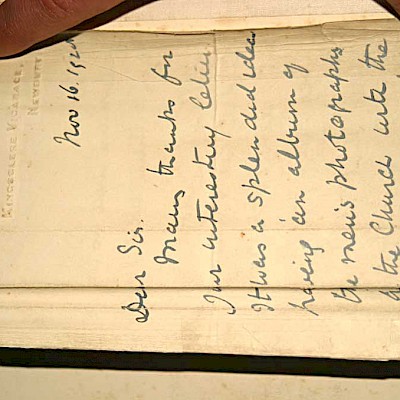 KINGSCLERE VICARAGE,
NEWBURY.
Nov 16. 19
Dear Sir.
Many thanks for
your interesting letter.
It was a splendid idea
having an album of
the men's photographs
the Church with the